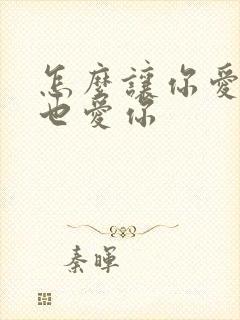 怎麼讓你愛
也愛你
秦暉